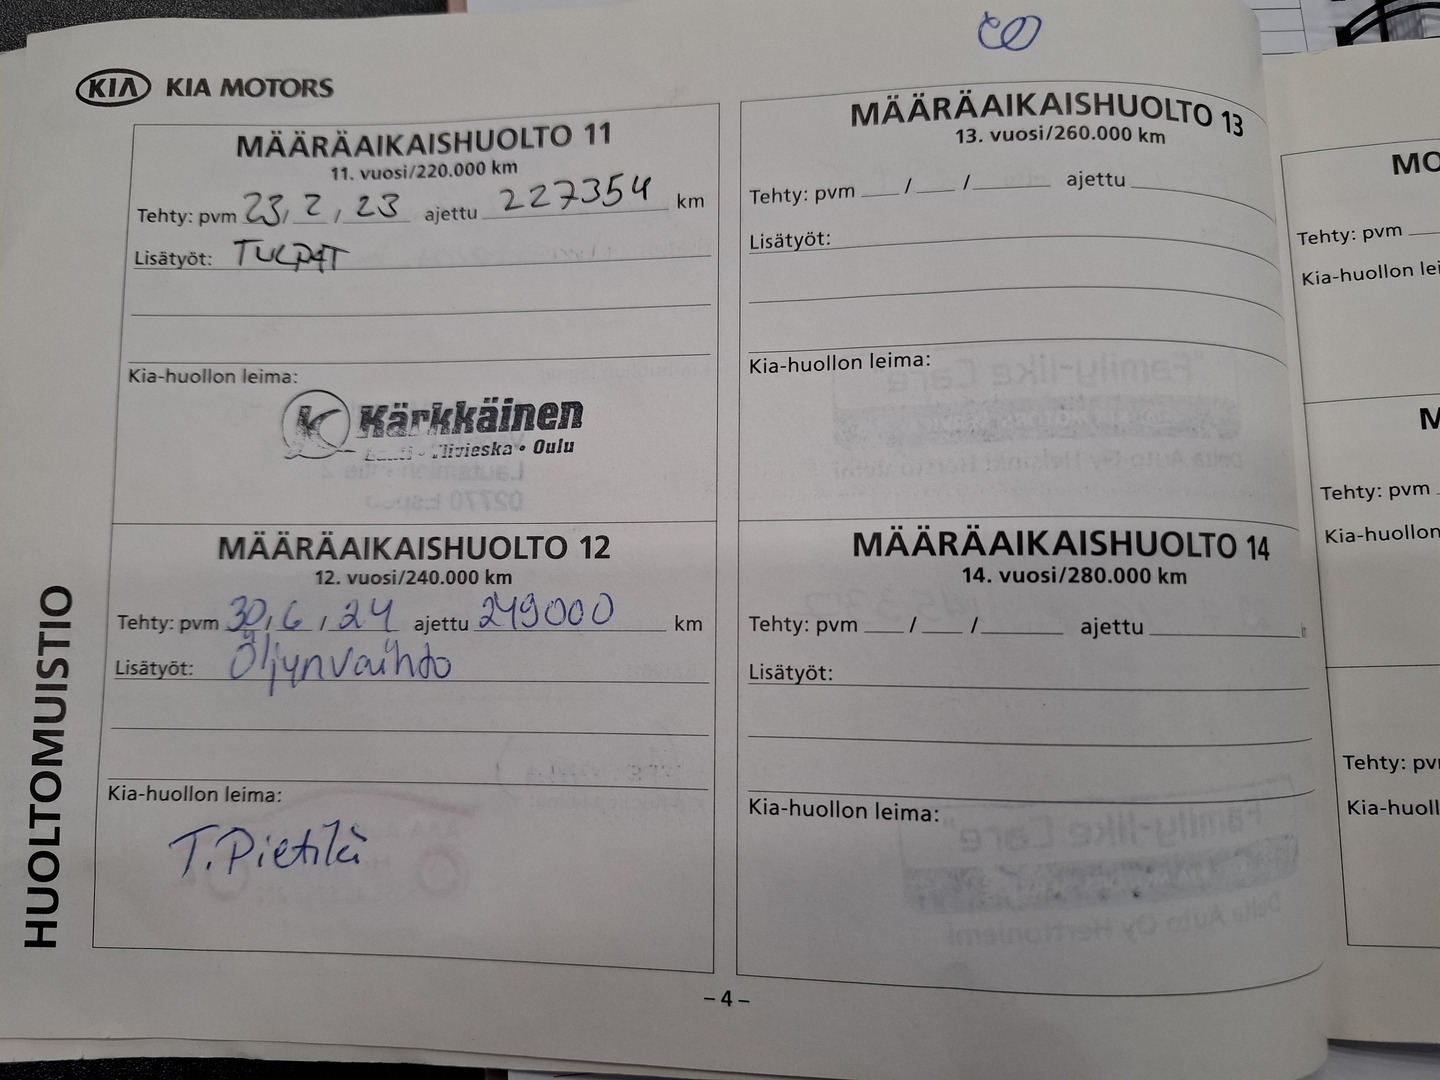 KIA KIA MOTORS
HUOLTOMUISTIO
MÄÄRÄAIKAISHUOLTO 11
11. vuosi/220.000 km
Tehty: pvm 23, 2, 23 ajettu 227354 km
Lisätyöt: TULPAT
Kia-huollon leima:
Kärkkäinen
Ylivieska • Oulu
MÄÄRÄAIKAISHUOLTO 12
12. vuosi/240.000 km
Tehty: pvm 30, 6, 24 ajettu 249000 km
Lisätyöt: Öljynvaihto
Kia-huollon leima:
T. Pietilä
MÄÄRÄAIKAISHUOLTO 13
13. vuosi/260.000 km
Tehty: pvm ___ / ___ / ______ ajettu
Lisätyöt:
Kia-huollon leima:
MÄÄRÄAIKAISHUOLTO 14
14. vuosi/280.000 km
Tehty: pvm ___ / ___ / ______ ajettu
Lisätyöt:
Kia-huollon leima:
– 4 –
MO
Tehty: pvm
Kia-huollon lei
M
Tehty: pvm
Kia-huollon
Tehty: pv
Kia-huoll